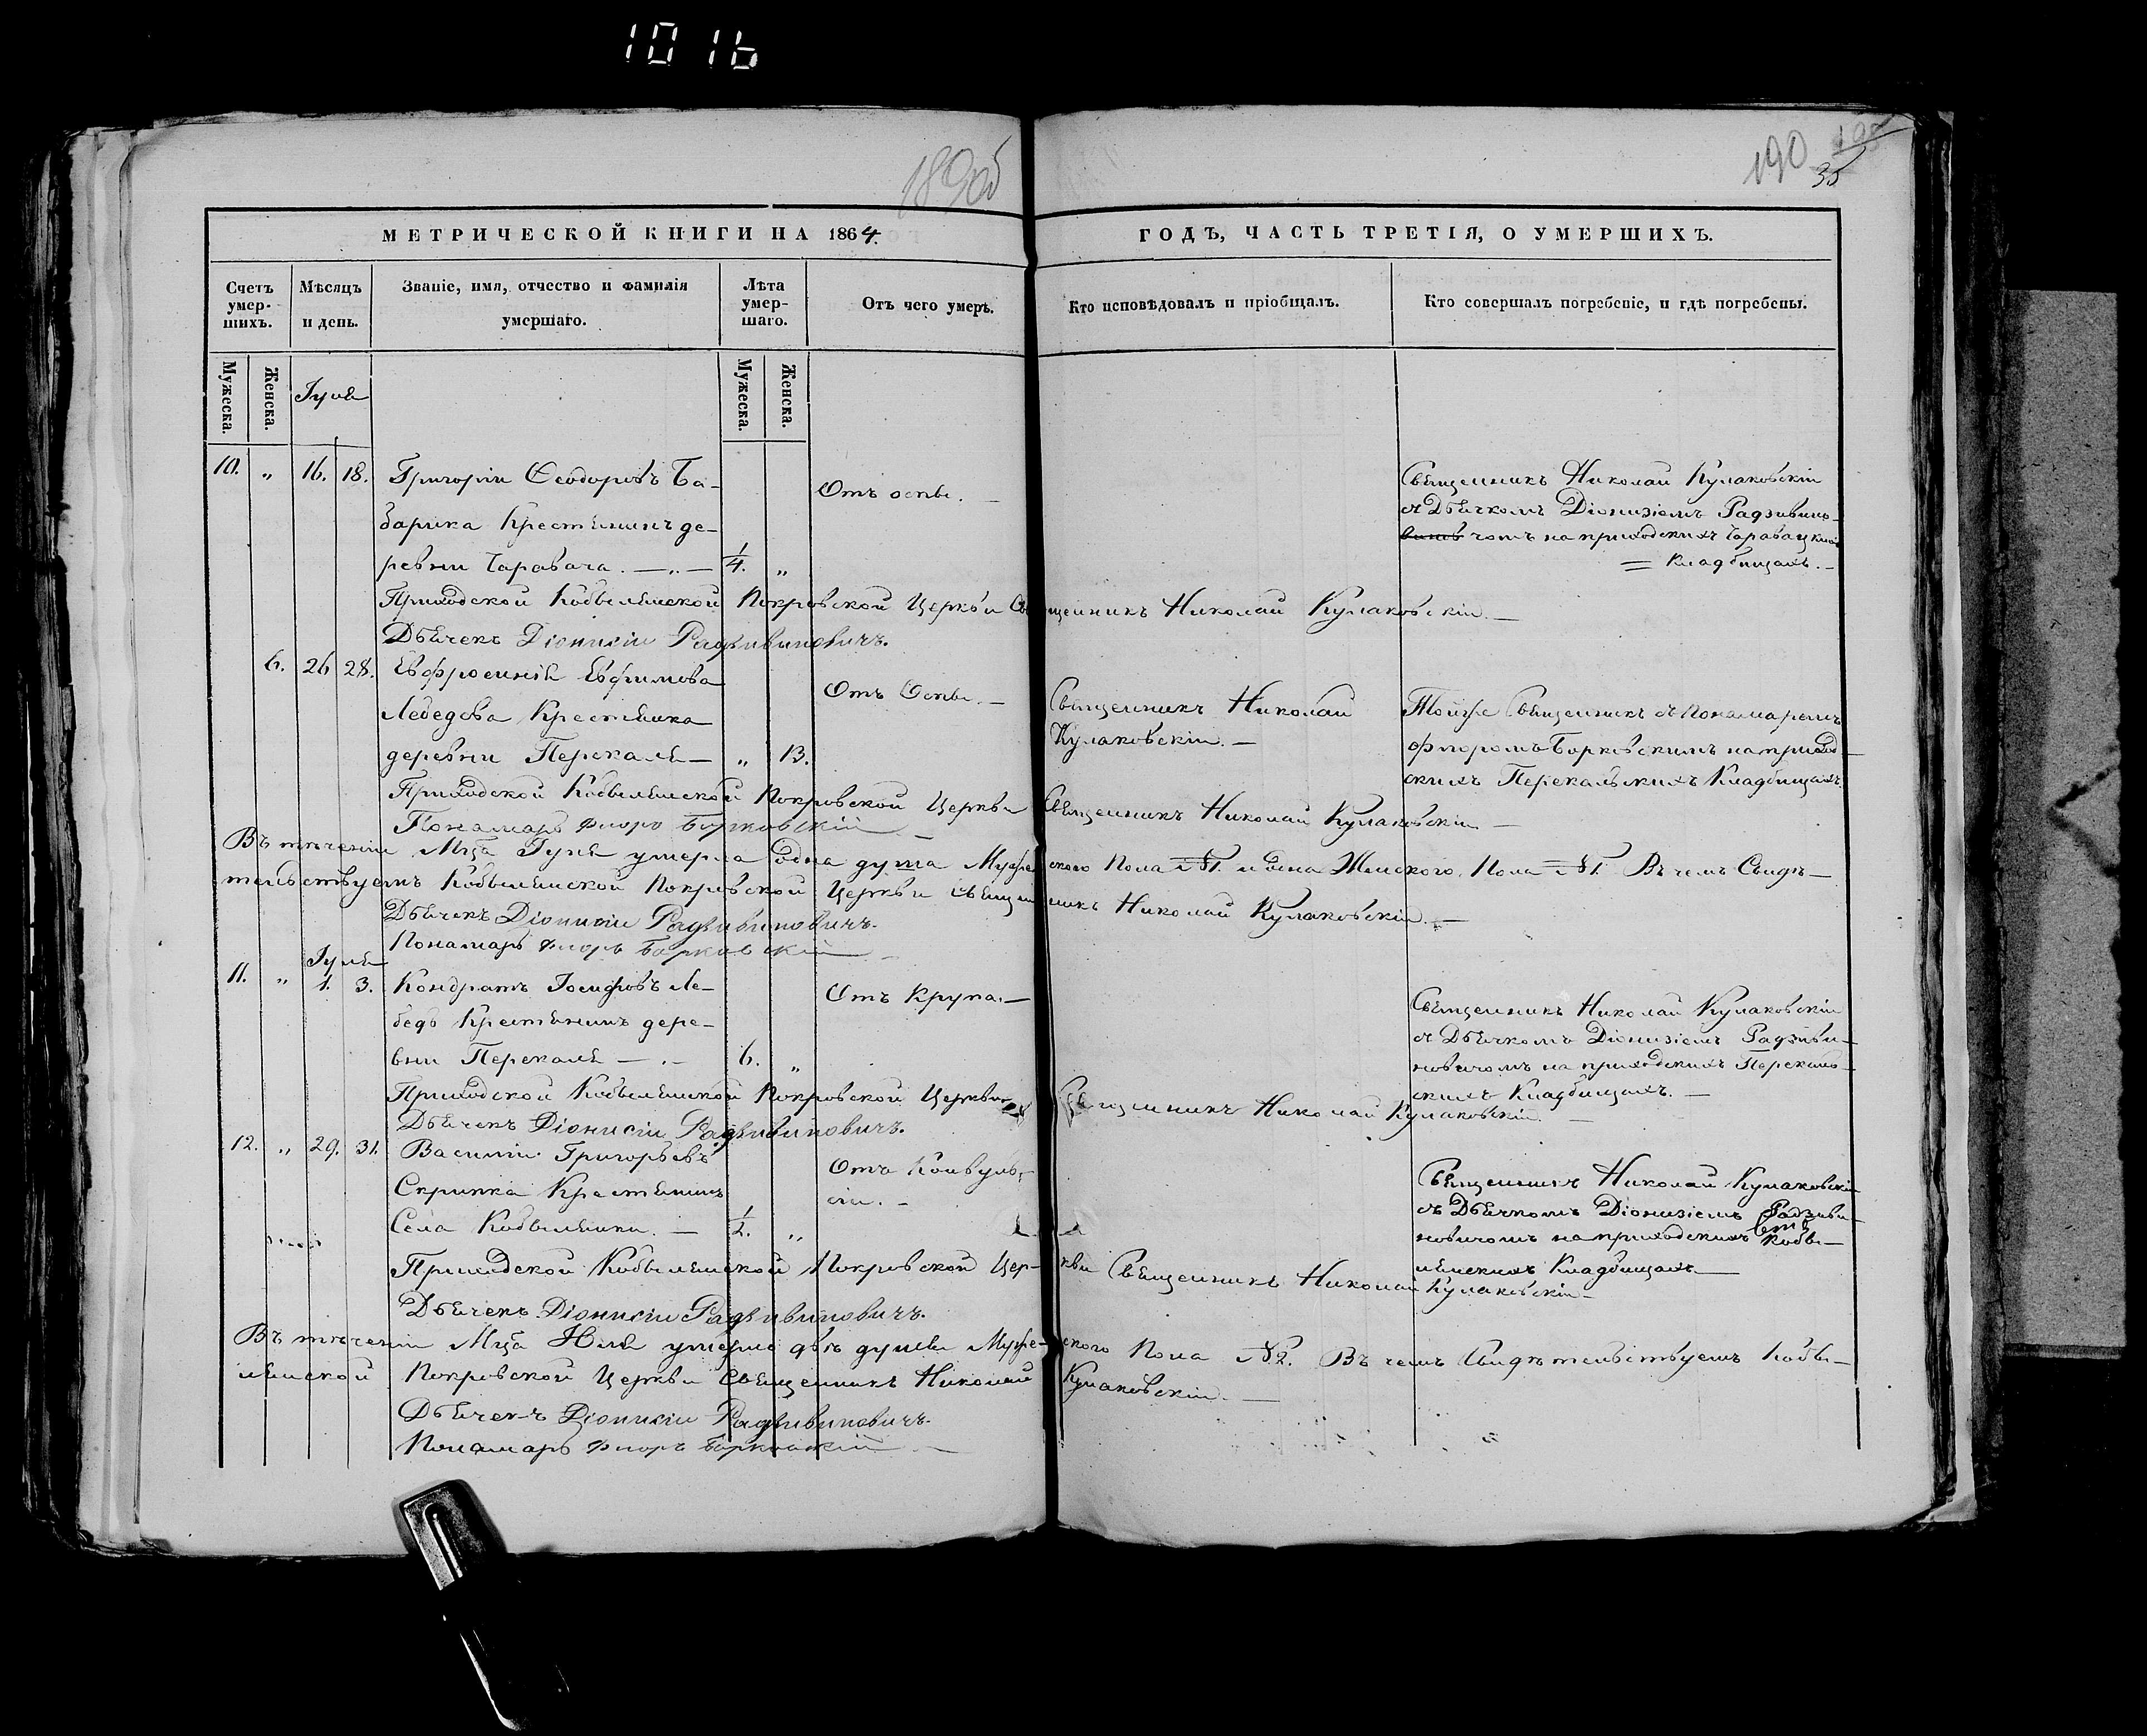 1016
189об
190
35
МЕТРИЧЕСКОЙ КНИГИ НА 1864.
ГОДЪ, ЧАСТЬ ТРЕТІЯ, О УМЕРШИХЪ.
Счетъ умер-шихъ.
Мѣсяцъ и день.
Званіе, имя, отчество и фамилія умершаго.
Лѣта умер-шаго.
Отъ чего умеръ.
Кто исповѣдовалъ и пріобщалъ.
Кто совершалъ погребеніе, и гдѣ погребены.
Мужеска.
Женска.
Мужеска.
Женска.
10. „ 16. 18. Григорій Ѳеодоровъ Ба-
зарика Крестьянинъ де-
ревни
1/4. „
Отъ оспы. —
Священникъ Николай Кулаковскій
съ Дьячкомъ Діонизіемъ Радзивино-
чомъ на приходскихъ
= Кладбищахъ. —
Приходской Кобылянской Покровской Церкви Священникъ Николай Кулаковскій. —
Дьячекъ Діонисій Радзивиновичъ.
6. 26 28. Евфросинія Ефимова
Лебедева Крестьянка
деревни Перекаля — „ 13.
Отъ Оспы. —
Священникъ Николай
Кулаковскій. —
Тойже Священникъ съ Понамаремъ
Флоромъ Борковскимъ на приход-
скихъ Перекальскихъ Кладбищахъ.
Приходской Кобылянской Покровской Церкви Священникъ Николай Кулаковскій —
Понамарь Флоръ Борковскій —
Въ теченіи Мца Іуня умерла одна душа Мужескаго Пола №1. и одна Женскаго Пола №1. Въ чемъ Свидѣ-
тельствуемъ Кобылянской Покровской Церкви Священникъ Николай Кулаковскій. —
Дьячекъ Діонисій Радзивиновичъ.
Понамарь Флоръ Борковскій —
Іуля
11. „ 1. 3. Кондратъ Іосифовъ Ле-
бедь Крестьянинъ дере-
вни Перекаля — . — 6. „
Отъ Крупа. —
Священникъ Николай Кулаковскій
съ Дьячкомъ Діонизіемъ Радзиви-
новичомъ на приходскихъ Перекаль-
скихъ Кладбищахъ. —
Приходской Кобылянской Покровской Церкви Священникъ Николай Кулаковскій. —
Дьячекъ Діонисій Радзивиновичъ.
12. „ 29. 31. Василій Григорьевъ
Скрипка Крестьянинъ
Села Кобылянки. — 1/2. „
Отъ Конвуль-
сіи. —
Священникъ Николай Кулаковскій
съ Дьячкомъ Діонизіемъ Радзиви-
новичомъ на приходскихъ Кобы-
лянскихъ Кладбищахъ —
Приходской Кобылянской Покровской Церкви Священникъ Николай Кулаковскій —
Дьячекъ Діонисій Радзивиновичъ.
Въ теченіи Мца Юля умерло двѣ душы Мужескаго Пола №2. Въ чемъ Свидѣтельствуемъ Кобы-
лянской Покровской Церкви Священникъ Николай Кулаковскій. —
Дьячекъ Діонисій Радзивиновичъ.
Понамарь Флоръ Борковскій —